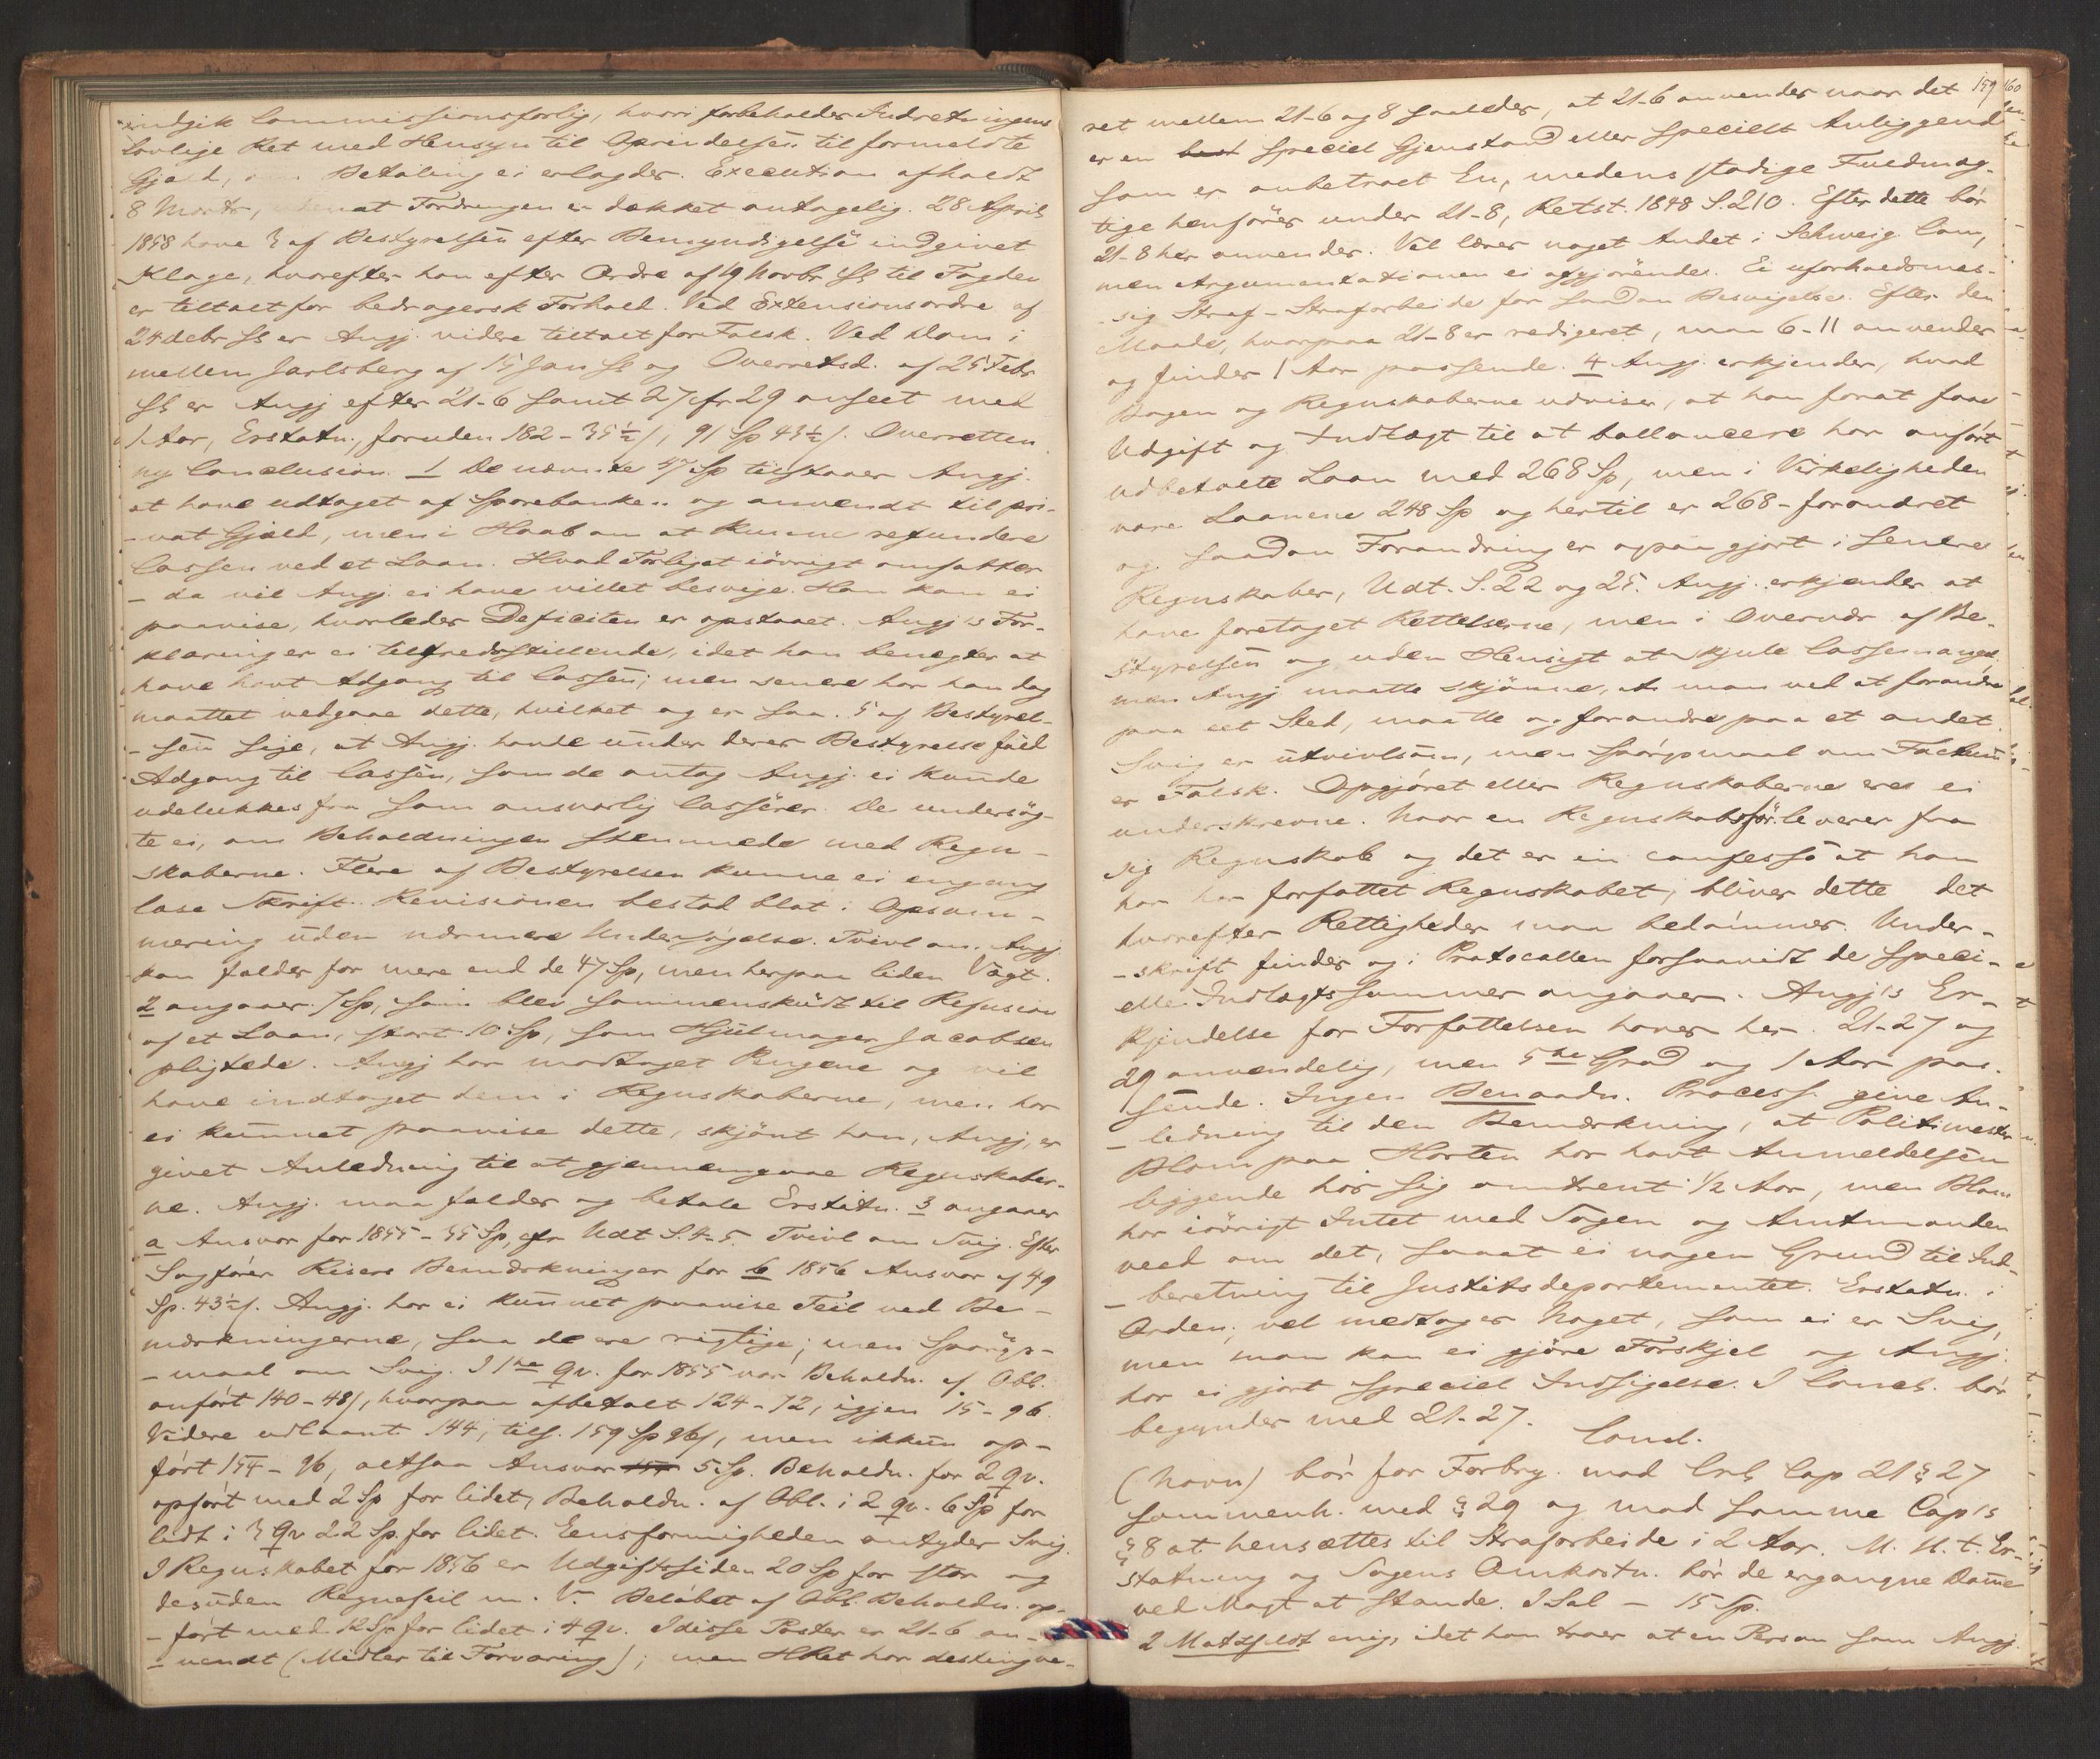 indgik Commissionsforlig, hvori forbeholdes Indretningens
lovlige Ret med Hensyn til Oprindelsen til formeldte
Gjæld, om Betaling ei erlagdes. Execution afholdt
8 Marts, uden at Fordringen er dækket antagelig. 28 April
1858 have 3 af Bestyrelsen efter Bemyndigelse indgivet
Klage, hvorefter han efter Ordre af 19 Novbr ss til Fogden
er tiltalt for bedragersk Forhold. Ved Extensionsordre af
24 debr ss er Angj. videre tiltalt for Falsk. Ved Dom i
mellem Jarlsberg af 15 Jan ss og Overretsd. af 25 Febr
ss er Angj efter 21-6 samt 27 cfr 29 anseet med
1 Aar, Erstatn., foruden 182 - 35½ s, 91 Sp 43½ s. Overretten
ny Conclusion. 1 De nævnte 47 Sp tilstaaer Angj.
at have udtaget af Sparebanken og anvendt til pri-
-vat Gjæld, men i Haab om at kunne refundere
Cassen ved et Laan. Hvad Forliget iövrigt omfatter
- da vil Angj. ei have villet besvige. Han kan ei
paavise, hvorledes Deficiten er opstaaet. Angj's For-
klaring er ei tilfredsstillende, idet han benægter at
have havt Adgang til Cassen; men senere har han dog
maattet vedgaae dette, hvilket og er saa. 5 af Bestyrel-
-sen sige, at Angj. havde under deres Bestyrelse fuld
Adgang til Cassen, som de antog Angj. ei kunde
udelukkes fra som ansvarlig Casserer. De undersög-
te ei, om Beholdningen stemmede med Regn-
skaberne. Flere af Bestyrelsen kunne ei engang
læse Skrift. Revisionen bestod blot i Opsum-
mering uden nærmere Undersögelse. Tvivl om Angj
kan fældes for mere end de 47 Sp, men herpaa liden Vægt.
2 angaaer 7 Sp, som blev sammenskudt til Refusion
af et Laan, stort 10 Sp, som Hjulmager Jacobsen
pligtede. Angj har modtaget Pengene og vil
have indtaget dem i Regnskaberne, men har
ei kunnet paavise dette, skjönt han, Angj, er
givet Anledning til at gjennemgaae Regnskaber-
ne. Angj. maa fældes og betale Erstatn. 3 angaaer
a Ansvar for 1855 - 35 Sp, cfr Udt S. 4-5. Tvivl om Svig. Efter
Sagförer Risers Bemærkninger for b 1856 Ansvar af 49
Sp. 43½ s. Angj. har ei kunnet paavise Feil ved Be-
mærkningerne, saa de ere rigtige; men Spörgs-
-maal om Svig. I 1ste Qv. for 1855 var Beholdn. af Obl.
anfört 140 - 48 s, hvorpaa afbetalt 124 - 72, igjen 15 - 96.
Videre udlaant 144, tils. 159 Sp 96 s, men ikkun op-
fört 154 - 96, altsaa Ansvar 5 Sp. Beholdn. for 2 Qv.
opfört med 2 Sp for lidet, Beholdn. af Obl. i 2 Qv. 6 Sp for
lidt i 3 Qv 22 Sp. for lidet. Eensformigheden antyder Svig.
I Regnskabet for 1856 er Udgiftssiden 20 Sp for stor og
desuden Regnefeil m. V. Belöbet af Obl. Beholdn. op-
-fört med 12 Sp for lidet i 4 Qv. I disse Poster er 21-6 an-
-vendt (Midler til Forvaring); men HRet har destingve-
159
160
ret mellem 21-6 og 8 saaledes, at 21-6 anvendes naar det
er en speciel Gjenstand eller specielt Anliggende
som er anbetroet En, medens stadige Fuldmæg-
tige henföres under 21-8, Retst. 1848 S. 210. Efter dette bör
21-8 her anvendes. Vel læres noget Andet i Schweig. Com,
men Argumentationen ei afgjörende. Ei uforholdsmæs-
sig Straf - Strafarbeide for saadan Besvigelse. Efter den
Maade, hvorpaa 21-8 er redigeret, maa 6-11 anvendes
og finder 1 Aar passende. 4 Angj. erkjender, hvad
Bogen og Regnskaberne udviser, at han forat faae
Udgift og Indtægt til at ballancere har anfört
udbetalte Laan med 268 Sp, men i Virkeligheden
vare Laanene 248 Sp og hertil er 268 - forandret
og saadan Forandring er ogsaa gjort i senere
Regnskaber, Udt. S. 22 og 25. Angj. erkjender at
have foretaget Rettelserne, men i Overvær af Be-
styrelsen og uden Hensigt at skjule Cassemangel.
men Angj maatte skjönne, at man ved at forandre
paa eet Sted, maatte og forandre paa et andet.
Svig er utvivlsom, men Spörgsmaal om Factum
er Falsk. Opgjöret eller Regnskaberne ere ei
underskrevne. Naar en Regnskabsför. leverer fra
sig Regnskab og det er in confesso at han
har forfattet Regnskabet, bliver dette det
hvorefter Rettigheder maa bedömmes. Under-
-skrift findes og i Protocollen forsaavidt de speci-
elle Indtægtssummer angaaer. Angj's Er-
kjendelse for Forfattelsen haves her. 21-27 og
29 anvendelig, men 5te Grad og 1 Aar pas-
sende. Ingen Benaadn. Process. give An-
-ledning til den Bemærkning, at Politimester
Blom paa Horten har havt Anmeldelsen
liggende hos sig omtrent ½ Aar, men Blom
har iövrigt Intet med Sagen og Amtmanden
veed om det, saaat ei nogen Grund til Ind-
-beretning til Justitsdepartementet. Erstatn. i
Orden; vel medtages Noget, som ei er Svig,
men man kan ei gjöre Forskjel og Angj.
har ei gjort speciel Indsigelse. I Concl. bör
begyndes med 21-27.
Concl.
(Navn) bör for Forbry. mod Crl. Cap 21 § 27
sammenh. med § 29 og mod samme Cap's
§ 8 at hensættes til Strafarbeide i 2 Aar. M. H. t. Er-
statning og Sagens Omkostn. bör de ergangne Domme
ved Magt at stande. I Sal - 15 Sp.
2 Motzfeldt enig, idet han troer at en Person som Angj.